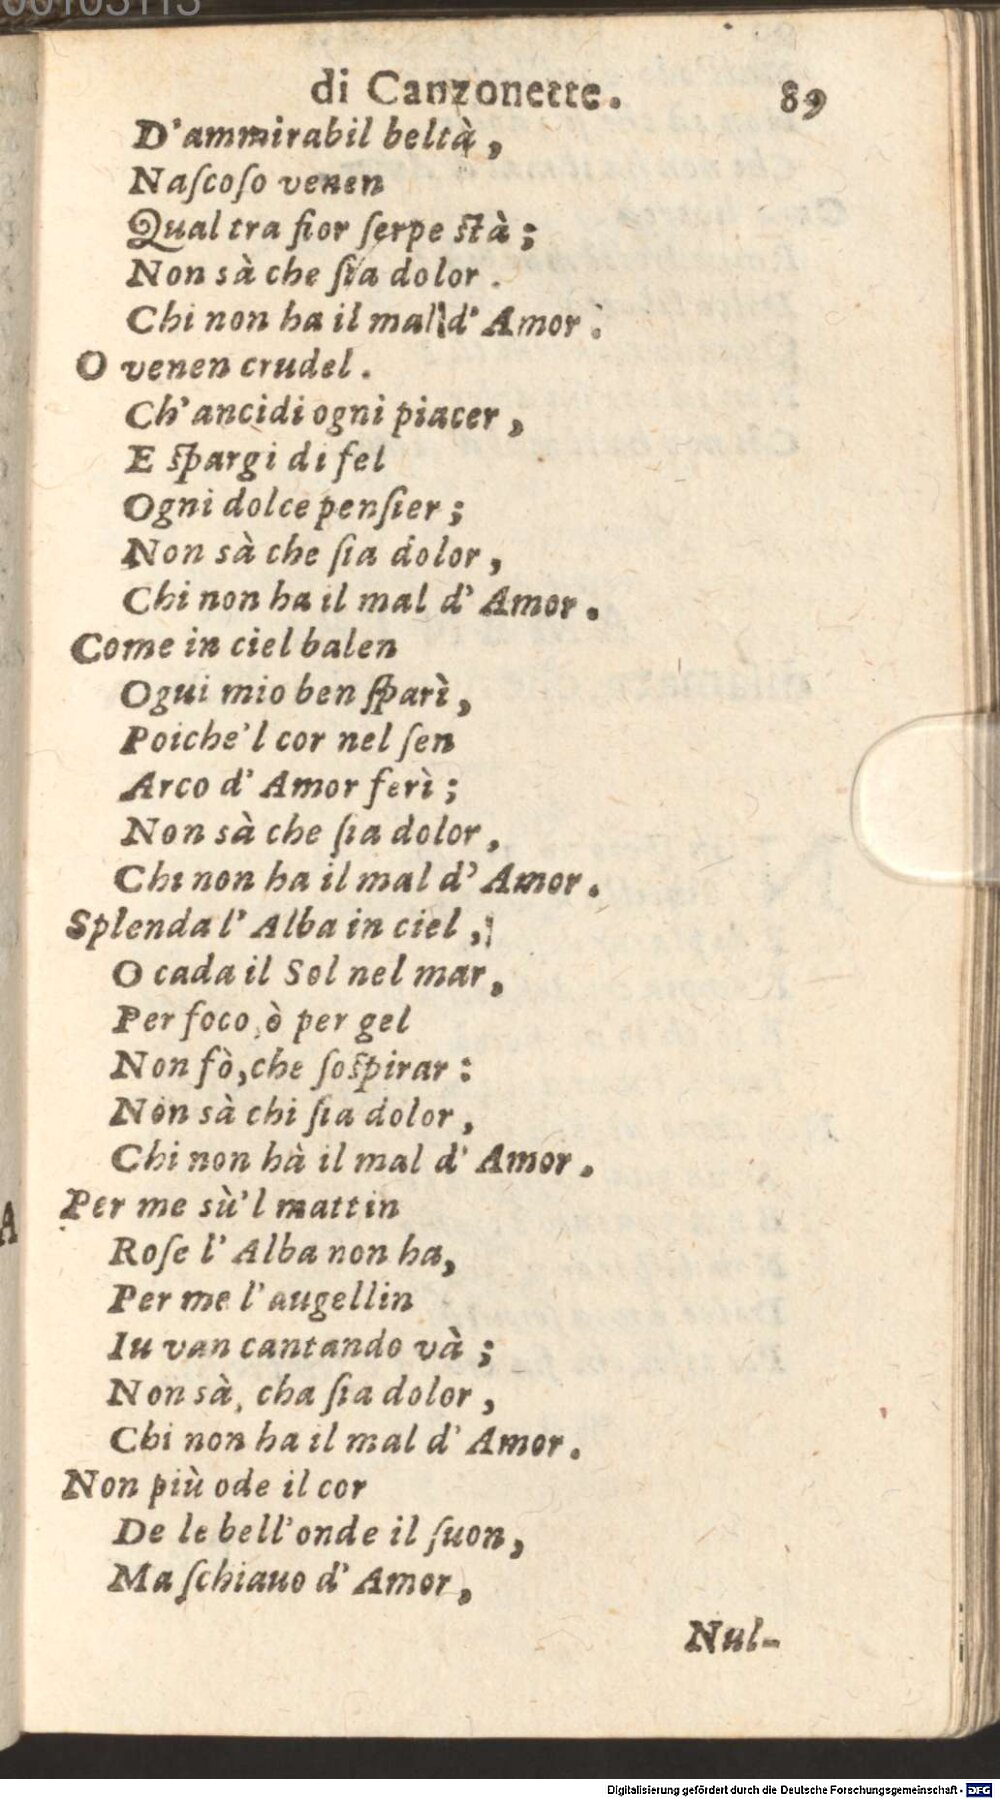 di Canzonette. 89
D'ammirabil beltà,
Naſcoſo venen
Qual tra fior ſerpe ſtà;
Non sà che ſia dolor.
Chi non ha il mal d' Amor.
O venen crudel.
Ch' ancidi ogni piacer,
E ſpargi di fel
Ogni dolce penſier;
Non sà che ſia dolor,
Chi non ha il mal d' Amor.
Come in ciel balen
Ogui mio ben ſparì,
Poiche'l cor nel ſen
Arco d' Amor ferì;
Non sà che ſia dolor,
Chi non ha il mal d' Amor.
Splenda l' Alba in ciel,
O cada il Sol nel mar,
Per foco, ò per gel
Non fò, che ſoſpirar:
Non sà chi ſia dolor,
Chi non hà il mal d' Amor.
Per me sù'l mattin
Roſe l' Alba non ha,
Per me l' augellin
Iu van cantando và;
Non sà, cha ſia dolor,
Chi non ha il mal d' Amor.
Non più ode il cor
De le bell' onde il ſuon,
Ma ſchiauo d' Amor,
Nul-
A
Digitalisierung gefördert durch die Deutsche Forschungsgemeinschaft - DFG